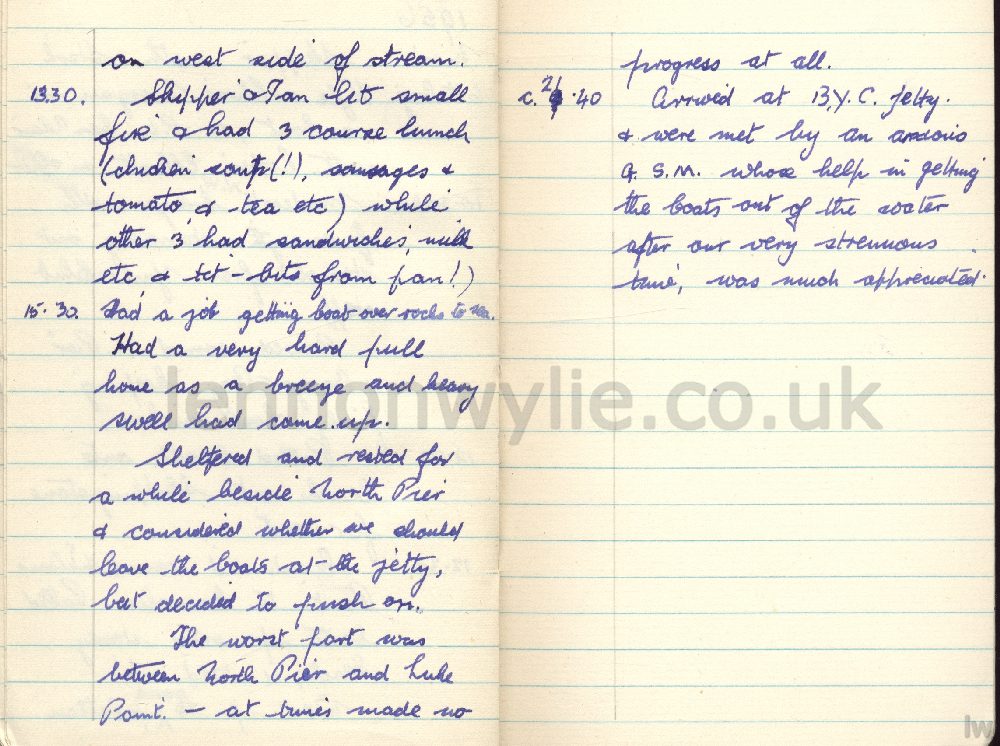 on west side of stream.
13.30. Skipper & Ian lit small
fire & had 3 course lunch
(chicken soup(!), sausages &
tomato, & tea etc) while
other 3 had sandwiches, milk
etc, & tit-bits from pan!)
15.30. Had a job getting boat over rocks to sea.
Had a very hard pull
home as a breeze and heavy
swell had come up.
Sheltered and rested for
a while beside North Pier
& considered whether we should
leave the boats at the jetty,
but decided to push on.
The worst part was
between North Pier and Luke
Point. – at times made no
progress at all.
c. 21.40 Arrived at B.Y.C. jetty.
& were met by an anxious
G.S.M. whose help in getting
the boats out of the water
after our very strenuous
time, was much appreciated.
lennonwylie.co.uk
lw